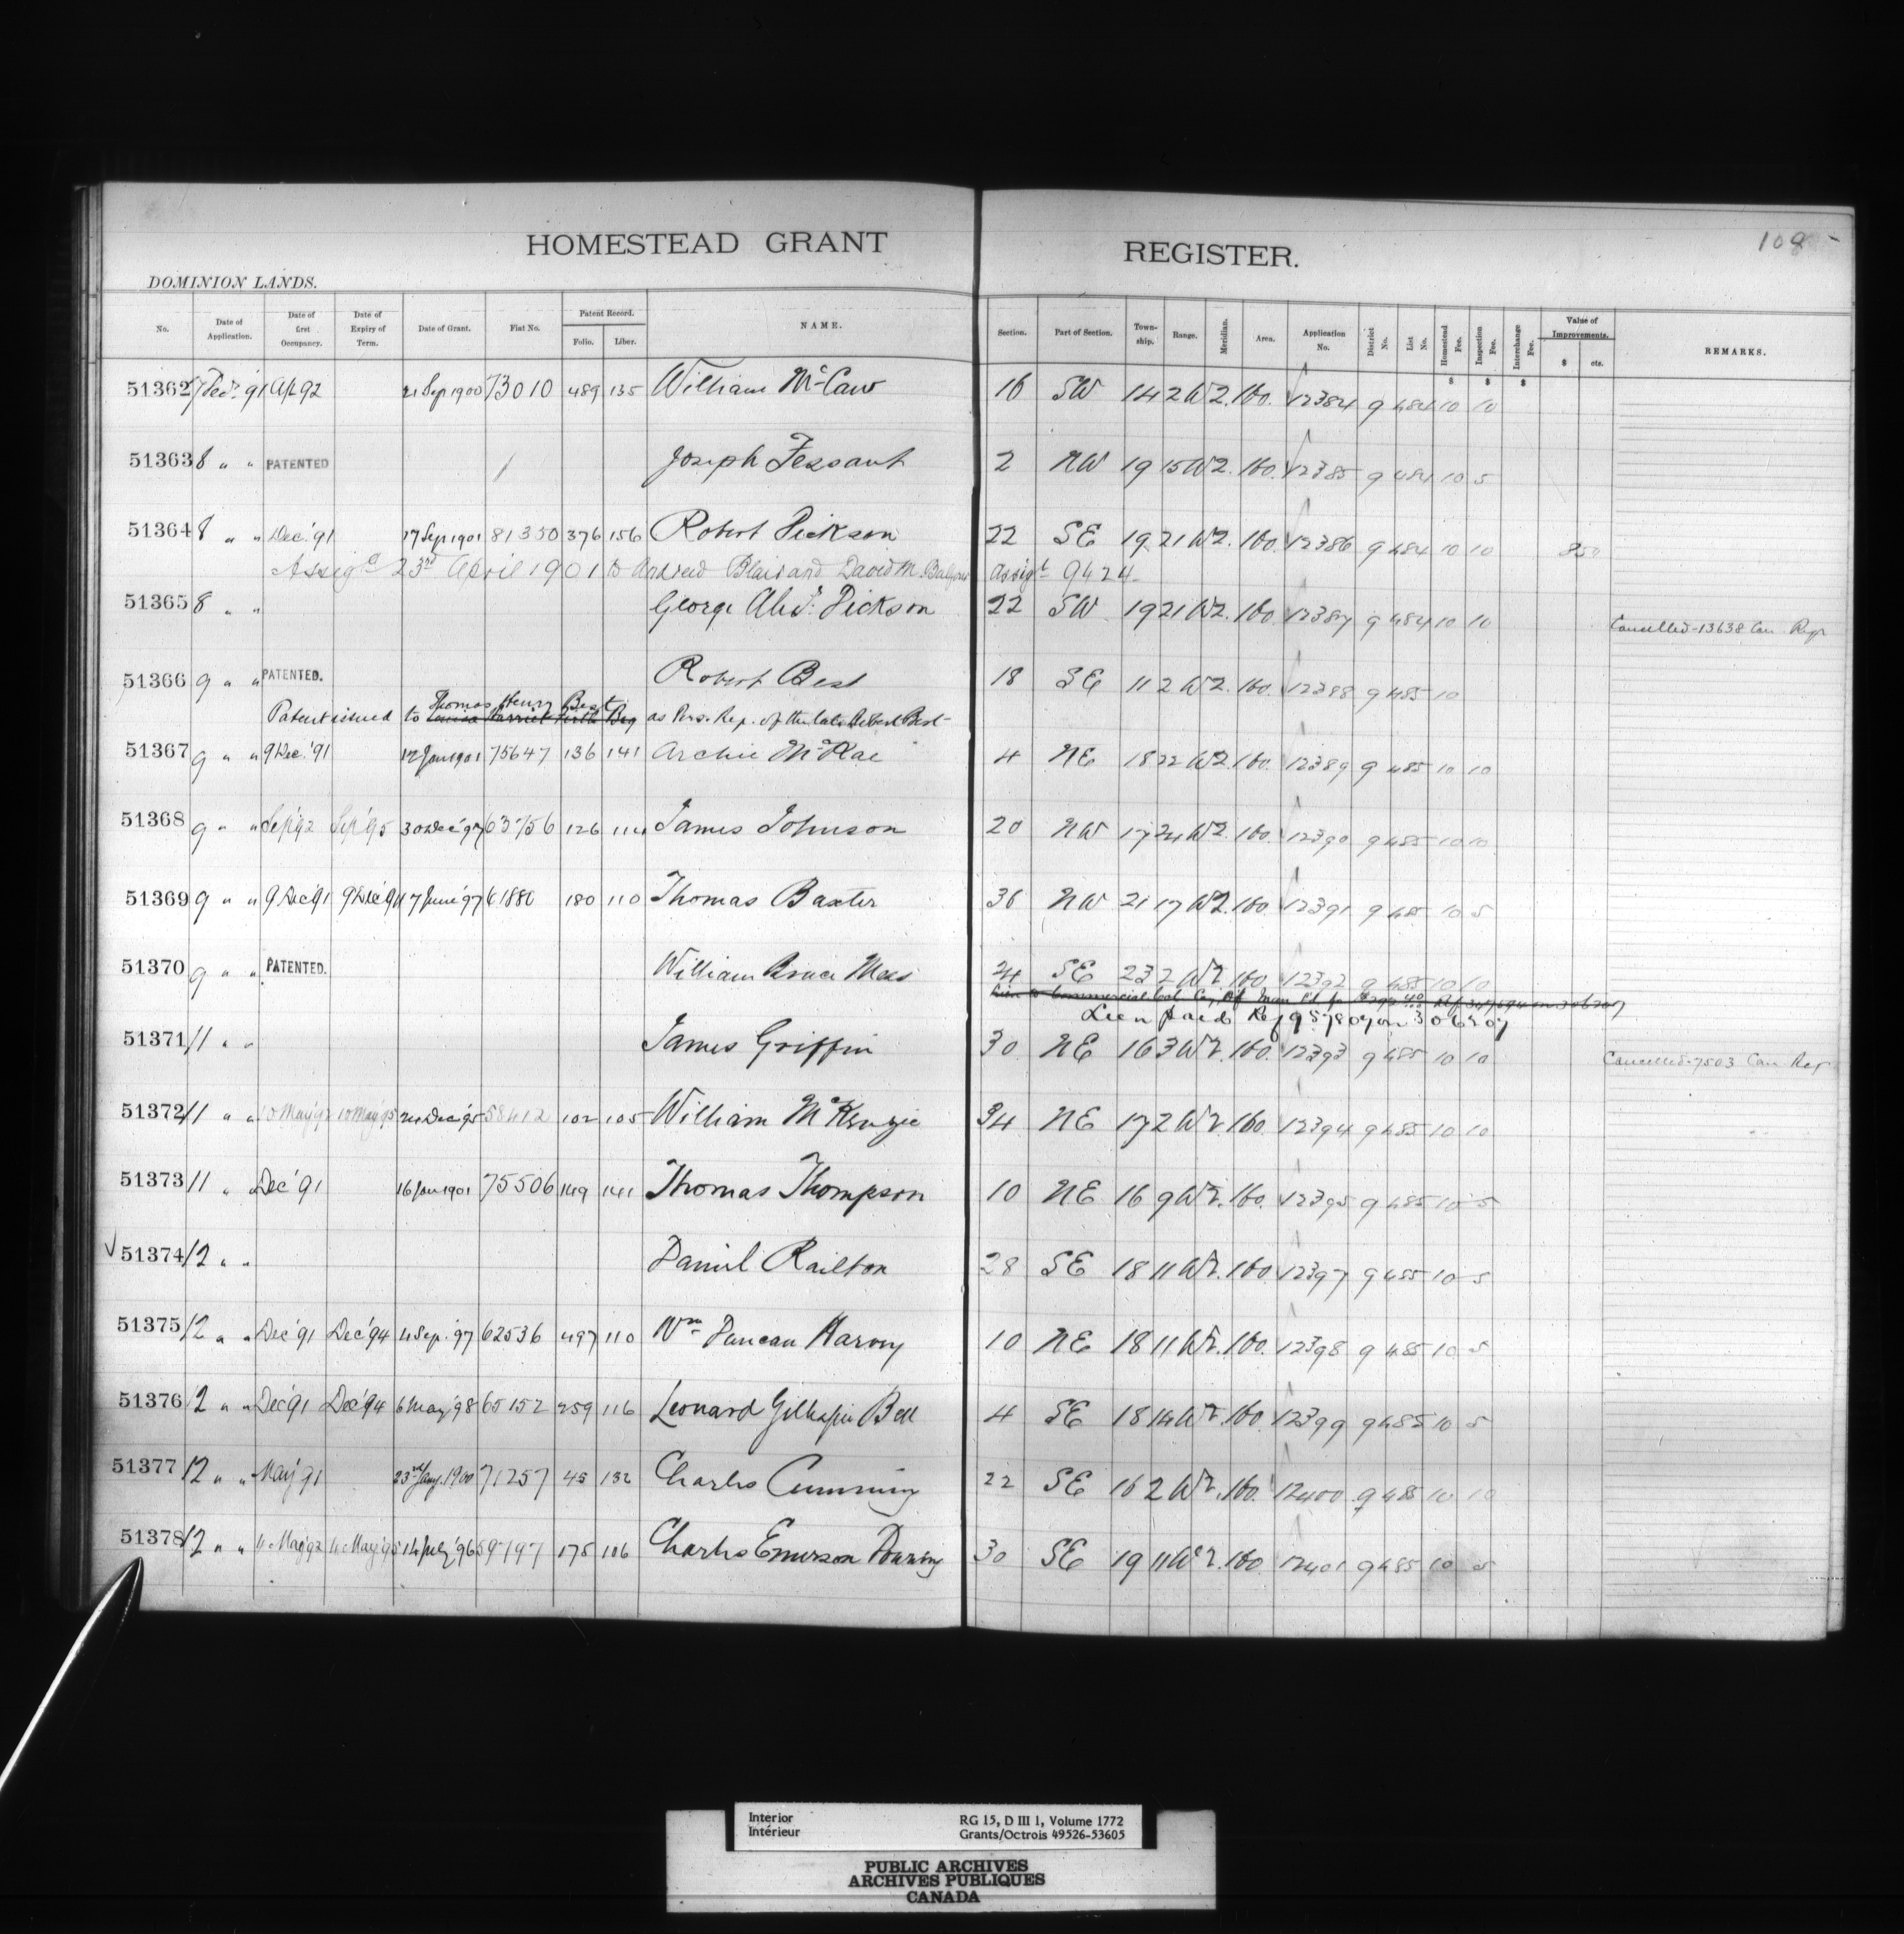 108
HOMESTEAD GRANT REGISTER.
DOMINION LANDS.
No. Date of Application. Date of first Occupancy. Date of Expiry of Term. Date of Grant. Fiat No. Patent Record. Folio. Liber. NAME. Section. Part of Section. Town-ship. Range. Meridian. Area. Application No. District No. List No. Homestead Fee. Inspection Fee. Interchange Fee. Value of Improvements. $ cts. REMARKS.
$ $ $
51362 7 Dec. '91 Ap '92 21 Sep 1900 73010 489 135 William McCaw 16 SW 14 2 W2. 160. 12384 9 484 10 10
51363 8 " " PATENTED Joseph 2 NW 19 15 W2. 160. 12385 9 484 10 5
51364 8 " " Dec. '91 17 Sep 1901 81350 376 156 Robert Dickson 22 SE 19 21 W2. 160. 12386 9 484 10 10 850
Assigd 23rd April 1901 to Andrew Blair and David M. Assigt 9424
51365 8 " " George Alexr. Dickson 22 SW 19 21 W2. 160. 12387 9 484 10 10 Cancelled-13638 Can Regr
51366 9 " " PATENTED. Robert Best 18 SE 11 2 W2. 160. 12388 9 485 10
Thomas Henry Best
Patent issued to Louisa Harriet as Pers. Rep. of the late Robert Best-
51367 9 " " 9 Dec. '91 12 Jan 1901 75647 136 141 Archie McRae 4 NE 18 22 W2. 160. 12389 9 485 10 10
51368 9 " " Sep '92 Sep '95 30 Dec '97 63756 126 114 James Johnson 20 NW 17 24 W2. 160. 12390 9 485 10 10
51369 9 " " 9 Dec '91 9 Dec '94 17 June '97 61880 180 110 Thomas Baxter 36 NW 21 17 W2. 160. 12391 9 485 10 5
51370 9 " " PATENTED. William Bruce 24 SE 23 2 W2. 160. 12392 9 485 10 10
Lien to Commercial
Lien paid Ref 957807 on 306207
51371 11 " " James Griffin 30 NE 16 3 W2. 160. 12393 9 485 10 10 Cancelled-7503 Can Reg
51372 11 " " 10 May '92 10 May '95 24 Dec '95 58412 102 105 William McKenzie 34 NE 17 2 W2. 160. 12394 9 485 10 10
51373 11 " " Dec '91 16 Jan 1901 75506 149 141 Thomas Thompson 10 NE 16 9 W2. 160. 12395 9 485 10 5
51374 12 " " Daniel Railton 28 SE 18 11 W2. 160. 12397 9 485 10 5
51375 12 " " Dec '91 Dec '94 4 Sep. '97 62536 497 110 Wm Duncan Harvey 10 NE 18 11 W2. 160. 12398 9 485 10 5
51376 12 " " Dec '91 Dec '94 6 May '98 65152 259 116 Leonard Gillespie Bell 4 SE 18 14 W2. 160. 12399 9 485 10 5
51377 12 " " May '91 23rd Jany. 1900 71257 45 132 Charles Cumming 22 SE 16 2 W2. 160. 12400 9 485 10 10
51378 12 " " 4 May '92 4 May '95 14 July '96 59797 175 106 Charles Emerson 30 SE 19 11 W2. 160. 12401 9 485 10 5
Interior
Intérieur
RG 15, D III 1, Volume 1772
Grants/Octrois 49526-53605
PUBLIC ARCHIVES
ARCHIVES PUBLIQUES
CANADA